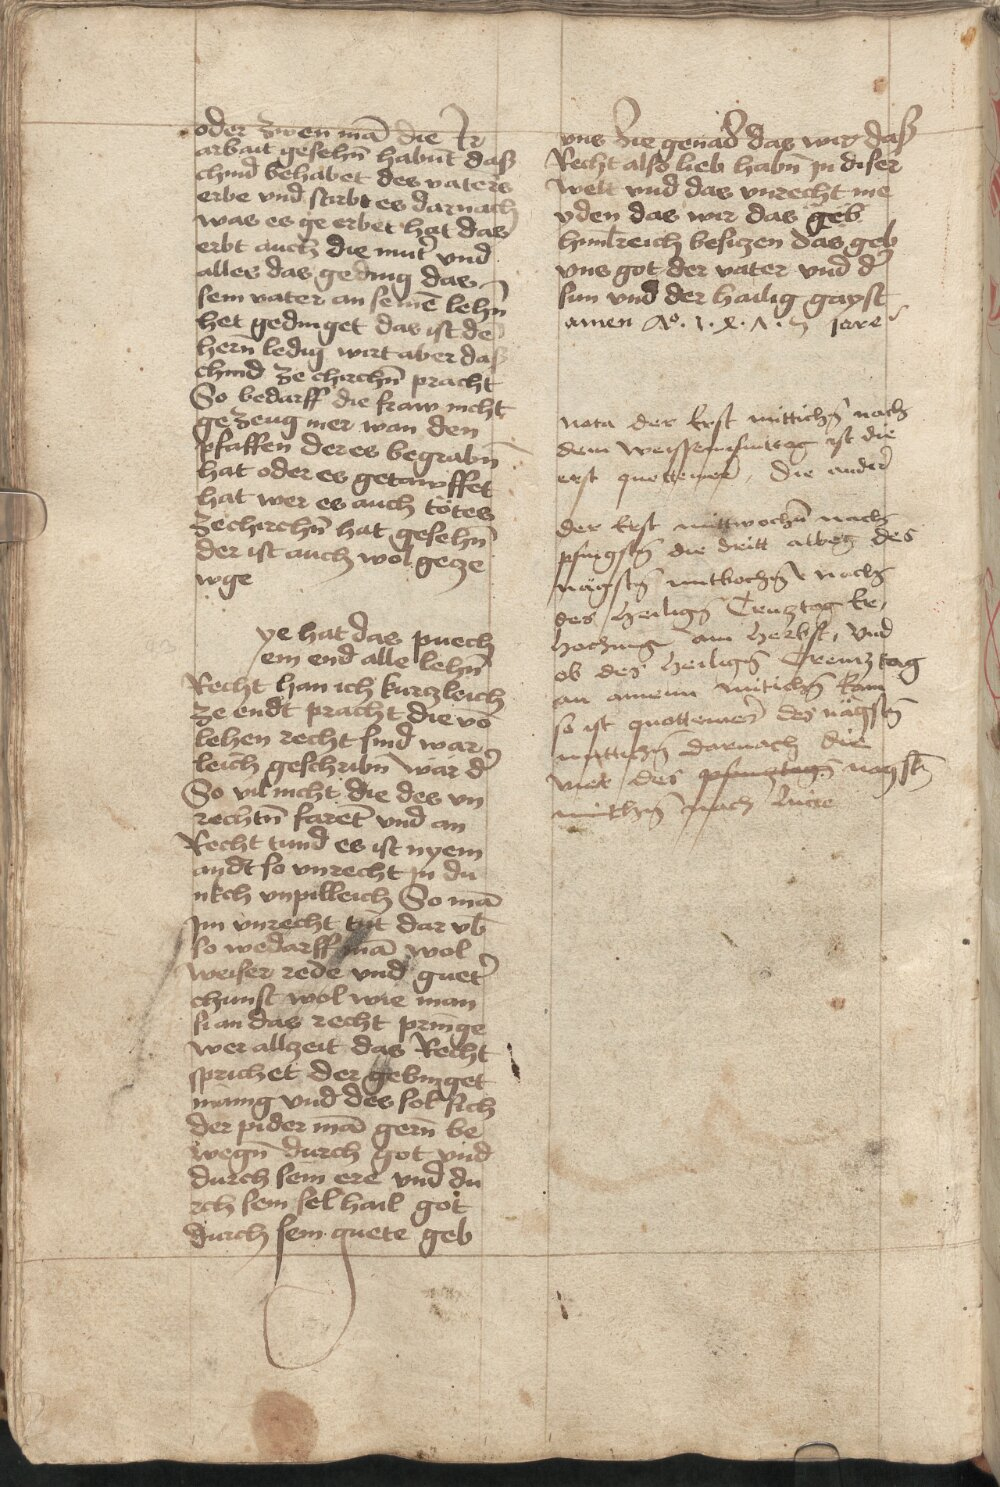 oder zwen mā die Ir
arbait gesehn̄ habūt daß
chind behabet des vaters
erbe vnd starbt es darnach
was es ge erbet hat das
erbt auch die mut̄ vnd
alles das geding das
sein vater an seinē lehn̄
het gedinget das ist dē
hern̄ ledig wirt aber daß
chind ze chirchn̄ pracht
So bedarff die fraw nicht
gezeug mer wan den
pfaffen der es begrabn̄
hat oder es getawffet
hat wer es auch totes
ze chirchn̄ hat gesehn̄
der ist auch wol geze
wge
ye hat das puech
ein end alle lehn̄
Recht han ich kurczleich
ze endt pracht die vō
lehen recht sind war
leich geschribn̄ wār d̄
So vil nicht die des vn
rechtn̄ farēt vnd an
Recht tund es ist nyem
andt so vnrecht in du
nkch vnpilleich So mā
Im vnrecht tut dar vb̄
so wedarff mā wol
weiser rede vnd guet̄
chunst wol wie man
si an das recht pringe
wer allzeit das Recht
sprichet der gebinget
mānig vnd des sol sich
der pider mā gern̄ be
wegn̄ durch got vnd
durch sein ere vnd du
rch sein sel hail got
durch sein guete geb
vns die genad das wir daß
Recht also lieb habn̄ in diser
welt vnd das vnrecht me
yden das wir das geb
himlreich besiczen das geb
vns got der vater vnd d̄
sun vnd der hailig gayst
amen
nota der erst mittichn̄ nach
dem weissensuntag ist die
erst quottemer, die ander
der erst mittwochn̄ nach
pfingstn̄ die dritt albeg des
nāgstn̄ mitbochn̄ nach
des heilign̄ Creucztag er,
hochung am herbst, vnd
ob des heilign̄ Creucztag
an ainem mitichn̄ kam
so ist quottemer des nāgstn̄
mittichn̄ darnach die
viert des pfincztag nagstn̄
mitichn̄ nach Lucie